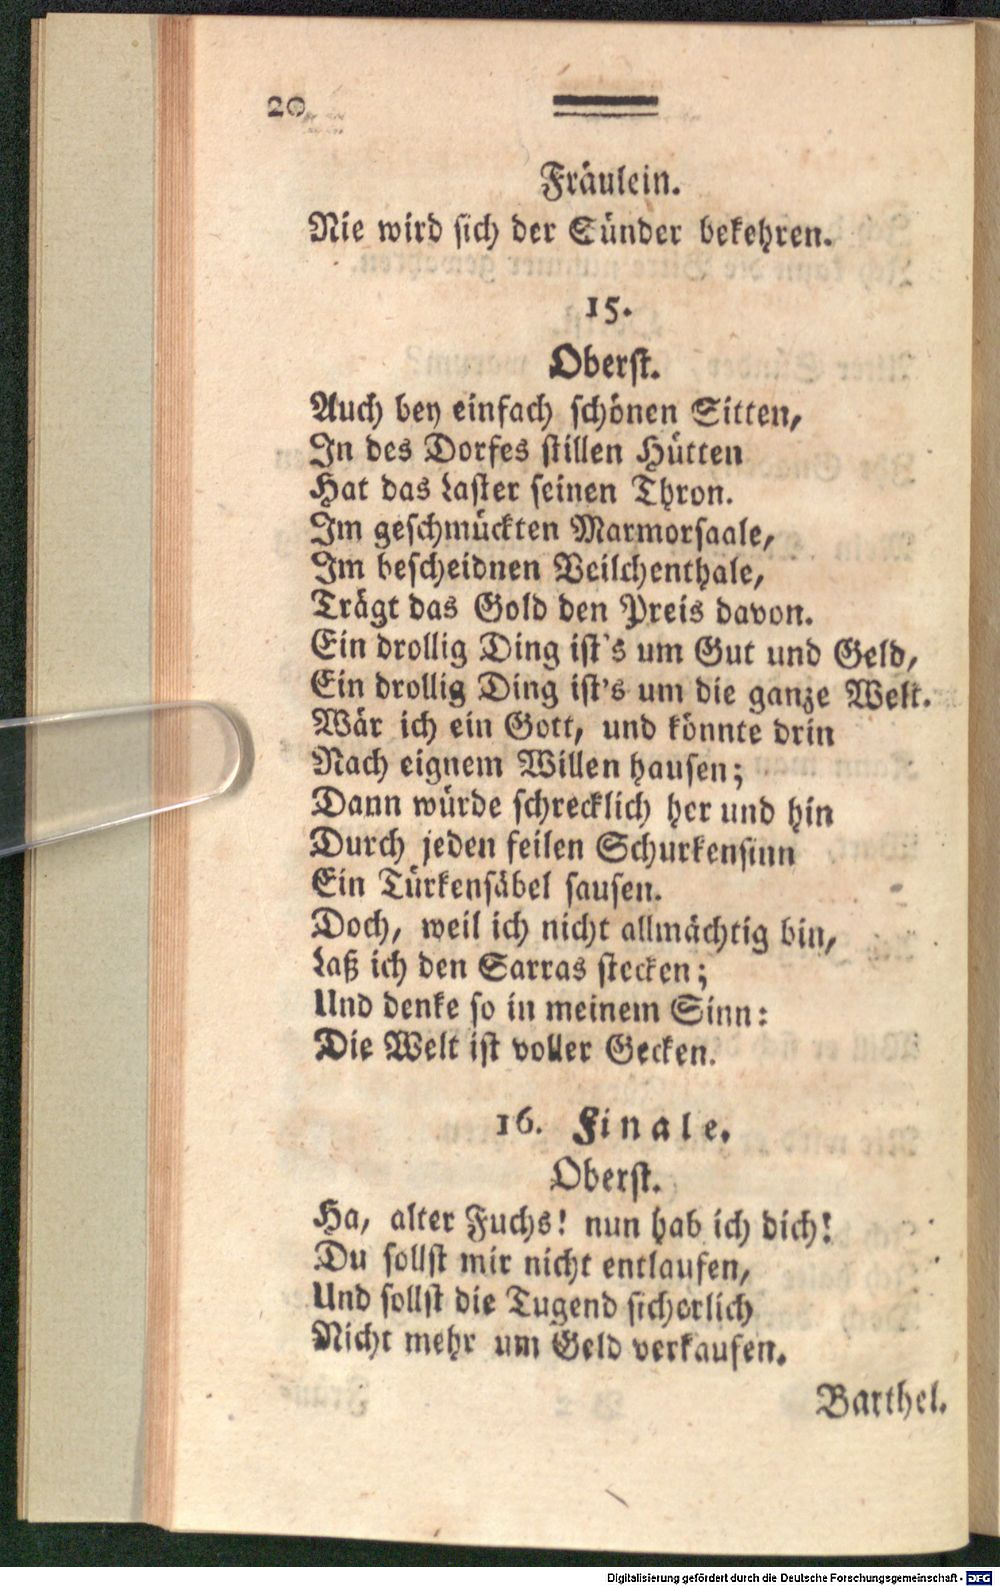 20
Fräulein.
Nie wird sich der Sünder bekehren.
15.
Oberst.
Auch bey einfach schönen Sitten,
In des Dorfes stillen Hütten
Hat das Laster seinen Thron.
Im geschmückten Marmorsaale,
Im bescheidnen Veilchenthale,
Trägt das Gold den Preis davon.
Ein drollig Ding ist's um Gut und Geld,
Ein drollig Ding ist's um die ganze Welt.
Wär ich ein Gott, und könnte drin
Nach eignem Willen hausen;
Dann würde schrecklich her und hin
Durch jeden feilen Schurkensinn
Ein Türkensäbel sausen.
Doch, weil ich nicht allmächtig bin,
Laß ich den Sarras stecken;
Und denke so in meinem Sinn:
Die Welt ist voller Gecken.
16. Finale.
Oberst.
Ha, alter Fuchs! nun hab ich dich!
Du sollst mir nicht entlaufen,
Und sollst die Tugend sicherlich
Nicht mehr um Geld verkaufen.
Barthel.
Digitalisierung gefördert durch die Deutsche Forschungsgemeinschaft - DFG